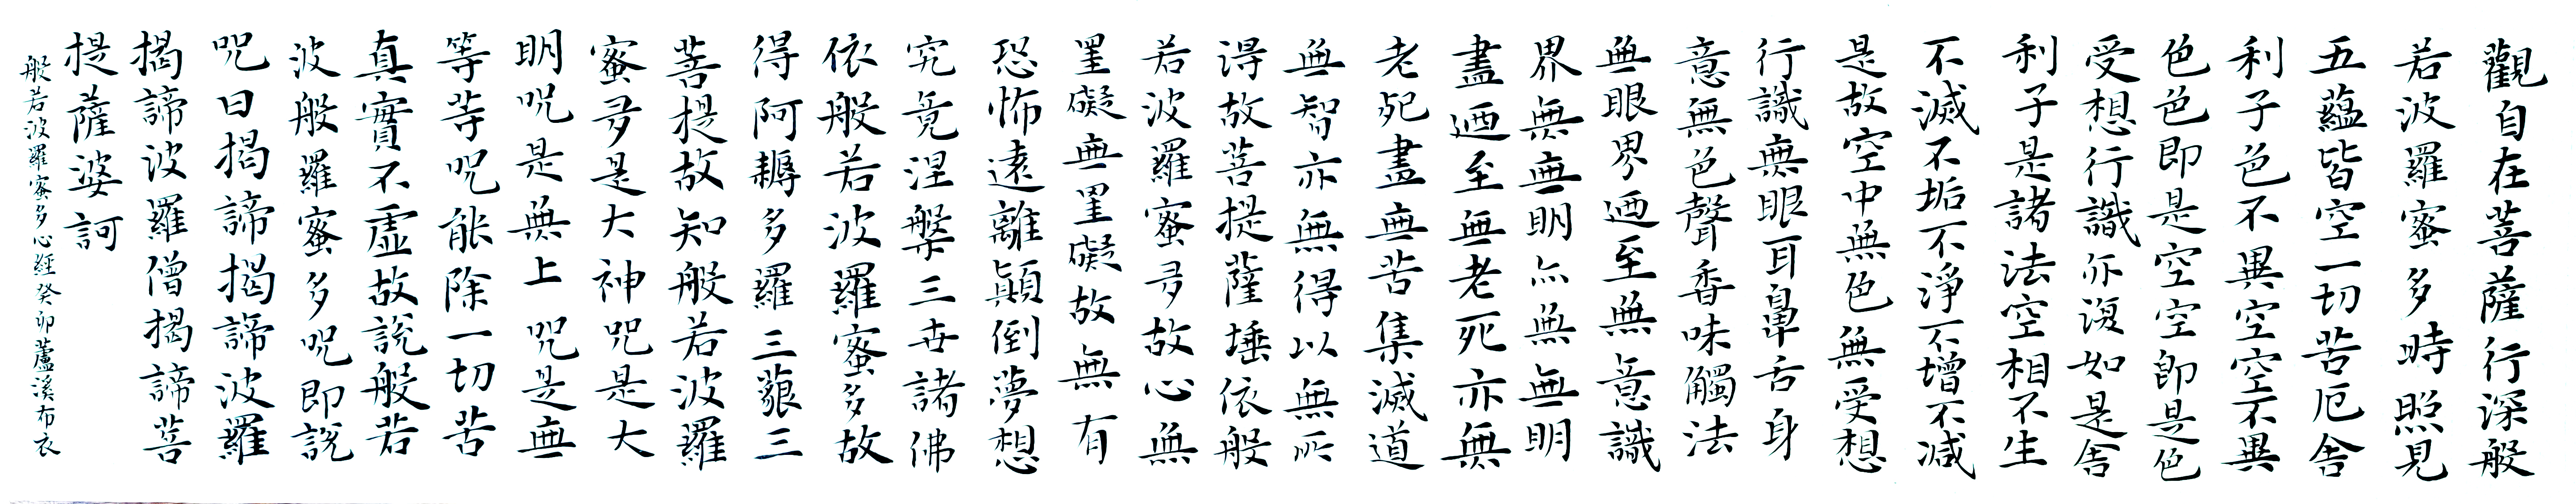 觀自在菩薩行深般
若波羅蜜多時照見
五蘊皆空一切苦厄舍
利子色不異空空不異
色色即是空空即是色
受想行識亦復如是舍
利子是諸法空相不生
不滅不垢不淨不增不減
是故空中無色無受想
行識無眼耳鼻舌身
意無色聲香味觸法
無眼界廼至無意識
界無無明亦無無明
盡廼至無老死亦無
老死盡無苦集滅道
無智亦無得以無所
得故菩提薩埵依般
若波羅蜜多故心無
罣礙無罣礙故無有
恐怖遠離顛倒夢想
究竟涅槃三世諸佛
依般若波羅蜜多故
得阿耨多羅三藐三
菩提故知般若波羅
蜜多是大神咒是大
明咒是無上咒是無
等等咒能除一切苦
真實不虛故說般若
波般羅蜜多咒即說
咒曰揭諦揭諦波羅
揭諦波羅僧揭諦菩
提薩婆訶
般若波羅蜜多心經癸卯蘆溪布衣